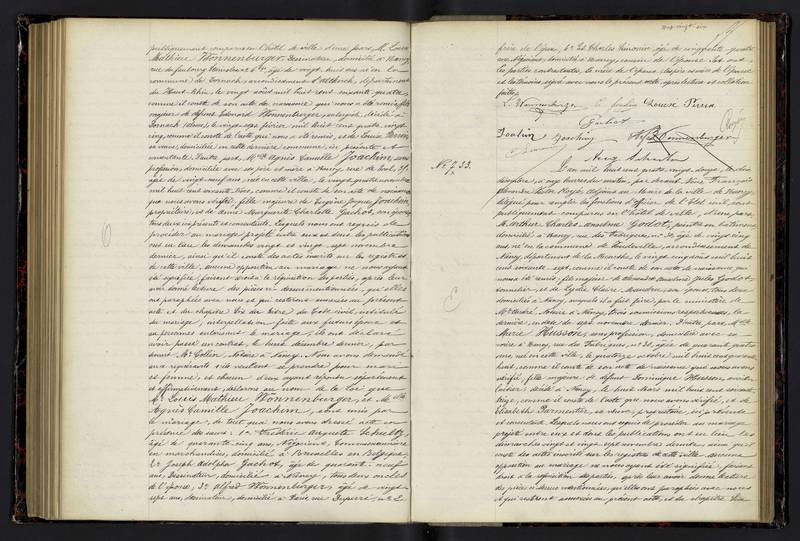 publiquement comparus en l'hôtel de ville, d'une part, M. Louis
Mathieu Wonnenburger, Dessinateur, domicilié à Nancy,
rue du faubourg Stanislas, âgé de vingt huit ans, né en la
commune de Dornach, arrondissement d'Altkirch, département
du Haut-Rhin, le vingt août mil huit cent soixante quatre
comme il conste de son acte de naissance qui nous a été remis, fils
majeur de Alfred Edouard Wonnenburger, décédé à
Dornach, le vingt sept février mil huit cent quatre vingt
cinq, comme il conste de l'acte qui nous a été remis, et de Louise Perrin
sa veuve, domiciliée en cette dernière commune, ici présente et
consentante. D'autre part, Mlle Agnès Camille Joachim, sans
profession, domiciliée avec ses père et mère à Nancy, rue de Toul,
âgée de vingt neuf ans, née en cette ville, le vingt quatre novembre
mil huit cent soixante trois, comme il conste de son acte de naissance
que nous avons vérifié, fille majeure de Eugène Jacques Joachim
propriétaire, et de dame Marguerite Charlotte Gachot, son épouse,
tous deux ici présents et consentants. Lesquels nous ont requis de
procéder au mariage projeté entre eux et dont les publications
ont eu lieu les dimanches vingt et vingt sept novembre
dernier, ainsi qu'il conste des actes inscrits sur les registres
de cette ville, aucune opposition au mariage ne nous ayant
été signifiée, faisant droit à la réquisition des parties, après leur
avoir donné lecture des pièces ci-dessus mentionnées, qu'elles
ont paraphées avec nous et qui resteront annexées au présent
acte et du chapitre six du titre du Code civil, intitulé
du mariage, interpellation faite aux futurs époux et
aux personnes autorisant le mariage, ils ont déclaré
avoir passé un contrat, le huit décembre dernier, par
devant Me Collin, Notaire à Nancy. Nous avons demandé
aux requérants s'ils veulent se prendre pour mari
et femme, et chacun d'eux ayant répondu séparément
et affirmativement, déclarons au nom de la Loi que
M. Louis Mathieu Wonnenburger, et Mlle
Agnès Camille Joachim, sont unis par
le mariage, de tout quoi nous avons dressé acte en
présence des sieurs: 1° Frédéric Auguste
âgé de quarante cinq ans, Négociant, Commissionnaire
en marchandises, domicilié à Bruxelles en Belgique
2° Joseph Adolphe Gachot, âgé de quarante neuf
ans, Dessinateur, domicilié à Nancy, tous deux oncles
de l'épouse, 3° Alfred Wonnenburger, âgé de vingt
sept ans, dessinateur, domicilié à Paris rue Duperré, n° 2
frère de l'époux, 4° Charles Simonin, âgé de cinquante quatre
ans, Négociant, domicilié à Nancy, cousin de l'épouse. Et ont
les parties contractantes, la mère de l'époux, les père et mère de l'épouse
et les témoins, signé avec nous le présent acte, après lecture et collation
faites.
L. Wonnenburger C. Joachim Louise Perrin
Gachot
Joachim Joachim Alf. Wonnenburger
N° 733.
L'an mil huit cent quatre vingt douze, le dix
décembre, à cinq heures du soir, par devant nous, François
Alexandre Victor Noyé, adjoint au Maire de la ville de Nancy,
délégué pour remplir les fonctions d'officier de l'état civil, sont
publiquement comparus en l'hôtel de ville, d'une part,
M. Arthur Charles Anselme Godot, peintre en bâtiments
domicilié à Nancy, rue des Fabriques, n° 20, âgé de vingt cinq
ans, né en la commune de Vandeville, arrondissement de
Nancy, département de la Meurthe, le vingt cinq août mil huit
cent soixante sept, comme il conste de son acte de naissance qui
nous a été remis, fils majeur de Jules Godot,
tonnelier, et de Lydie Claire Mandru, son épouse, tous deux
domiciliés à Nancy, auxquels il a fait faire, par le ministère de
Me André, Notaire à Nancy, trois sommations respectueuses, la
dernière, en date du sept novembre dernier. D'autre part, Mlle
Marie Husson, sans profession, domiciliée avec sa
mère à Nancy, rue des Fabriques, n° 20, âgée de quarante quatre
ans, née en cette ville, le quatorze octobre mil huit cent quarante
huit, comme il conste de son acte de naissance que nous avons
vérifié, fille majeure de Dominique Husson,
cocher, décédé à Nancy, le huit Mars mil huit cent soixante
treize, comme il conste de l'acte que nous avons vérifié, et de
Elisabeth Parmentier, sa veuve, propriétaire, ici présente
et consentante. Lesquels nous ont requis de procéder au mariage
projeté entre eux et dont les publications ont eu lieu les
dimanches vingt et vingt sept novembre dernier, ainsi qu'il
conste des actes inscrits sur les registres de cette ville, aucune
opposition au mariage ne nous ayant été signifiée, faisant
droit à la réquisition des parties, après leur avoir donné lecture
des pièces ci-dessus mentionnées, qu'elles ont paraphées avec nous
et qui resteront annexées au présent acte, et du chapitre six